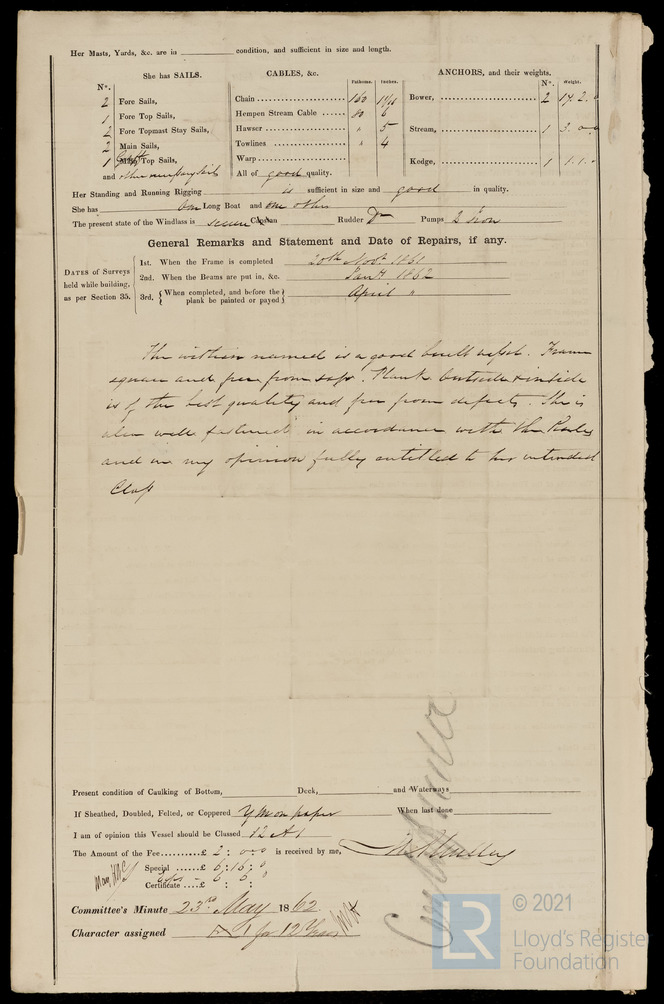 Her Masts, Yards, &c. are in condition, and sufficient in size and length.
She has SAILS.
N°.
2 Fore Sails,
1 Fore Top Sails,
2 Fore Topmast Stay Sails,
2 Main Sails,
1 Top Sails,
and other necessary sails
CABLES, &c.
Fathoms. Inches.
Chain 160
Hempen Stream Cable 80 6
Hawser " 5
Towlines " 4
Warp
All of good quality.
ANCHORS, and their weights.
N°. Weight.
Bower, 2 17.2.0
Stream, 1 3.0.0
Kedge, 1 1.1.0
Her Standing and Running Rigging is sufficient in size and good in quality.
She has one Long Boat and one other
The present state of the Windlass is secure Capstan Rudder Do Pumps 2 Iron
General Remarks and Statement and Date of Repairs, if any.
DATES of Surveys held while building, as per Section 35.
1st. When the Frame is completed 20th Novr. 1861
2nd. When the Beams are put in, &c. 1862
3rd. { When completed, and before the plank be painted or payed } April "
The within named is a good built vessel. Frame
square and free from sap. Plank outside & inside
is of the best quality and free from defects. She is
also well fastened in accordance with the Rules
and in my opinion fully entitled to her intended
Class
Present condition of Caulking of Bottom, Deck, and Waterways
If Sheathed, Doubled, Felted, or Coppered Y M on paper When last done
I am of opinion this Vessel should be Classed 12 A 1
The Amount of the Fee £ 2 : 0 : 0 is received by me,
Special £ 6 : 16 : 0
Certificate £ : :
Committee's Minute 23rd May 1862
Character assigned A 1 for 12 Years
LR
© 2021
Lloyd's Register
Foundation